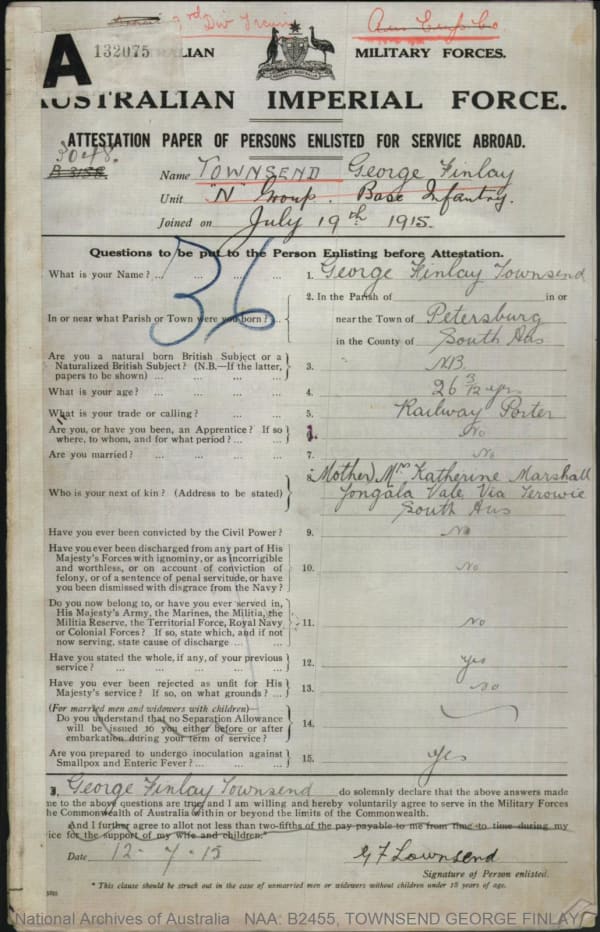 3rd Div Train
Aus Cyc Co
A
132075
AUSTRALIAN MILITARY FORCES.
AUSTRALIAN IMPERIAL FORCE.
ATTESTATION PAPER OF PERSONS ENLISTED FOR SERVICE ABROAD.
3048.
Name TOWNSEND George Finlay
Unit "N" Group. Base Infantry.
Joined on July 19th 1915.
Questions to be put to the Person Enlisting before Attestation.
36
What is your Name? ... ... ... ... 1. George Finlay Townsend
In or near what Parish or Town were you born? ... 2. In the Parish of in or
near the Town of Petersburg
in the County of South Aus
Are you a natural born British Subject or a
Naturalized British Subject? (N.B.—If the latter,
papers to be shown) ... ... ... 3. NB.
What is your age? ... ... ... ... 4. 26 3/12 yrs
What is your trade or calling? ... ... ... 5. Railway Porter
Are you, or have you been, an Apprentice? If so
where, to whom, and for what period? ... ... No
Are you married? ... ... ... ... 7. No
Who is your next of kin? (Address to be stated) 8. Mother) Mrs Katherine Marshall
Yongala Vale Via Terowie
South Aus
Have you ever been convicted by the Civil Power? 9. No
Have you ever been discharged from any part of His
Majesty's Forces with ignominy, or as incorrigible
and worthless, or on account of conviction of
felony, or of a sentence of penal servitude, or have
you been dismissed with disgrace from the Navy? 10. No
Do you now belong to, or have you ever served in,
His Majesty's Army, the Marines, the Militia, the
Militia Reserve, the Territorial Force, Royal Navy
or Colonial Forces? If so, state which, and if not
now serving, state cause of discharge ... ... 11. No
Have you stated the whole, if any, of your previous
service? ... ... ... ... 12. yes
Have you ever been rejected as unfit for His
Majesty's service? If so, on what grounds? ... 13. No
(For married men and widowers with children)—
Do you understand that no Separation Allowance
will be issued to you either before or after
embarkation during your term of service? ... 14.
Are you prepared to undergo inoculation against
Smallpox and Enteric Fever? ... ... ... 15. yes
I, George Finlay Townsend do solemnly declare that the above answers made
me to the above questions are true, and I am willing and hereby voluntarily agree to serve in the Military Forces
he Commonwealth of Australia within or beyond the limits of the Commonwealth.
And I further agree to allot not less than two-fifths of the pay payable to me from time to time during my
ice for the support of my wife and children.*
Date 12-7-15 G F Townsend
Signature of Person enlisted.
* This clause should be struck out in the case of unmarried men or widowers without children under 18 years of age.
National Archives of Australia NAA: B2455, TOWNSEND GEORGE FINLAY